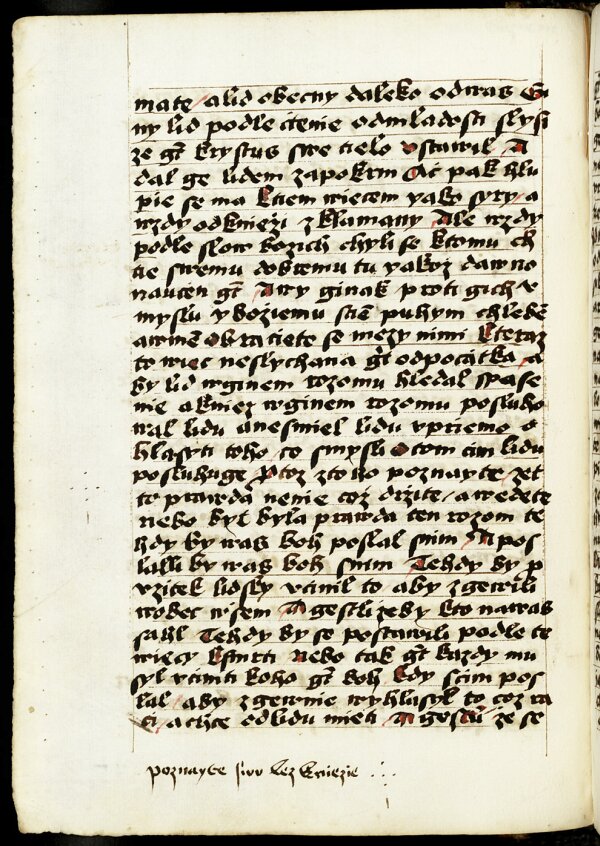 mate / a lid obecny daleko od was Gi
ny lid podle ctenie od mladosti slysi
ze gt krystus swe tielo vstawil A
dal ge lidem za pokrm Ac pak hlu
pie se ma k tiem wiecem yako syry / a
wzdy od kniezi zklamany Ale wzdy
podle slow bozich chyli se k tomu ch
tie swemu dobremu tu yakoz dawno
naucen gt A wy ginak proti gich v
myslu y boziemu stie puhym chlebem
a winem obraciete se mezy nimi kteraz
to wiec neslychana gt od pocatka / a
by lid w ginem rozomu hledal spase
nie a kniez w ginem rozomu posluho
wal lidu a nesmiel lidu vpriemo o
hlasyti toho / co smysli o tom cim lidu
posluhuge Protoz z toho poznayte / zet
to prawda nenie coz drzite / a wedete
nebo byt byla prawda ten rozom te
hdy by was boh poslal snim A pos
lalli by was boh snim Tehdy by p
vzitek lidsky vcinil to / aby zgewili
wobec wsem A gestli zeby kto na was
sahl Tehdy by se postawili podle te
wiecy k smrti nebo tak gt kazdy mu
syl vciniti koho gt boh kdy s cim pos
lal / aby zgewnie wyhlasyl to coz ra
ci / a chce od lidu mieti A gestli ze se
poznayte swu lez kniezie . : .